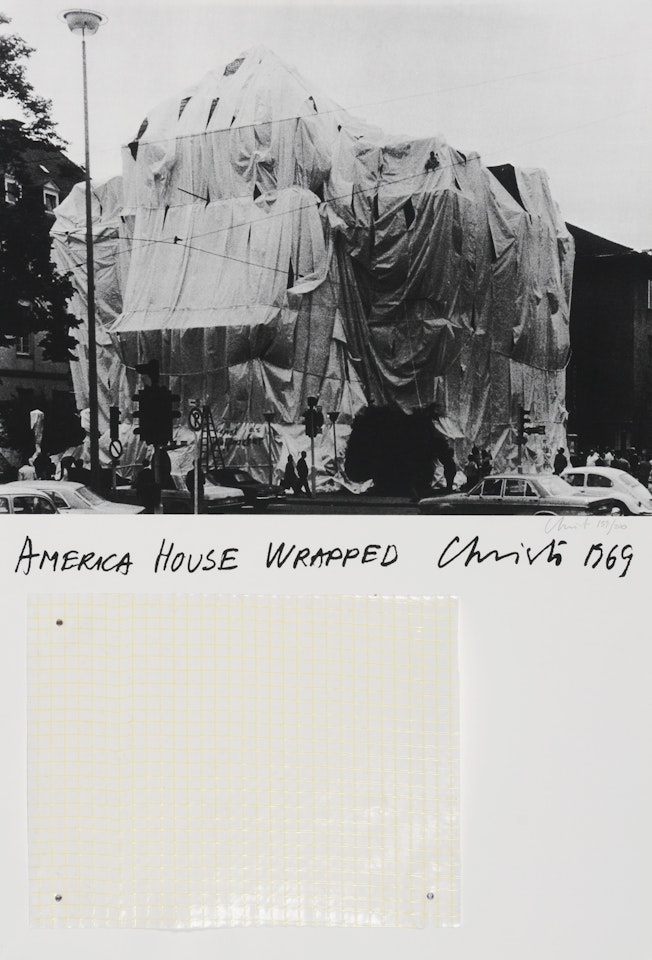 Christo
AMERICA HOUSE WRAPPED Christo 1969